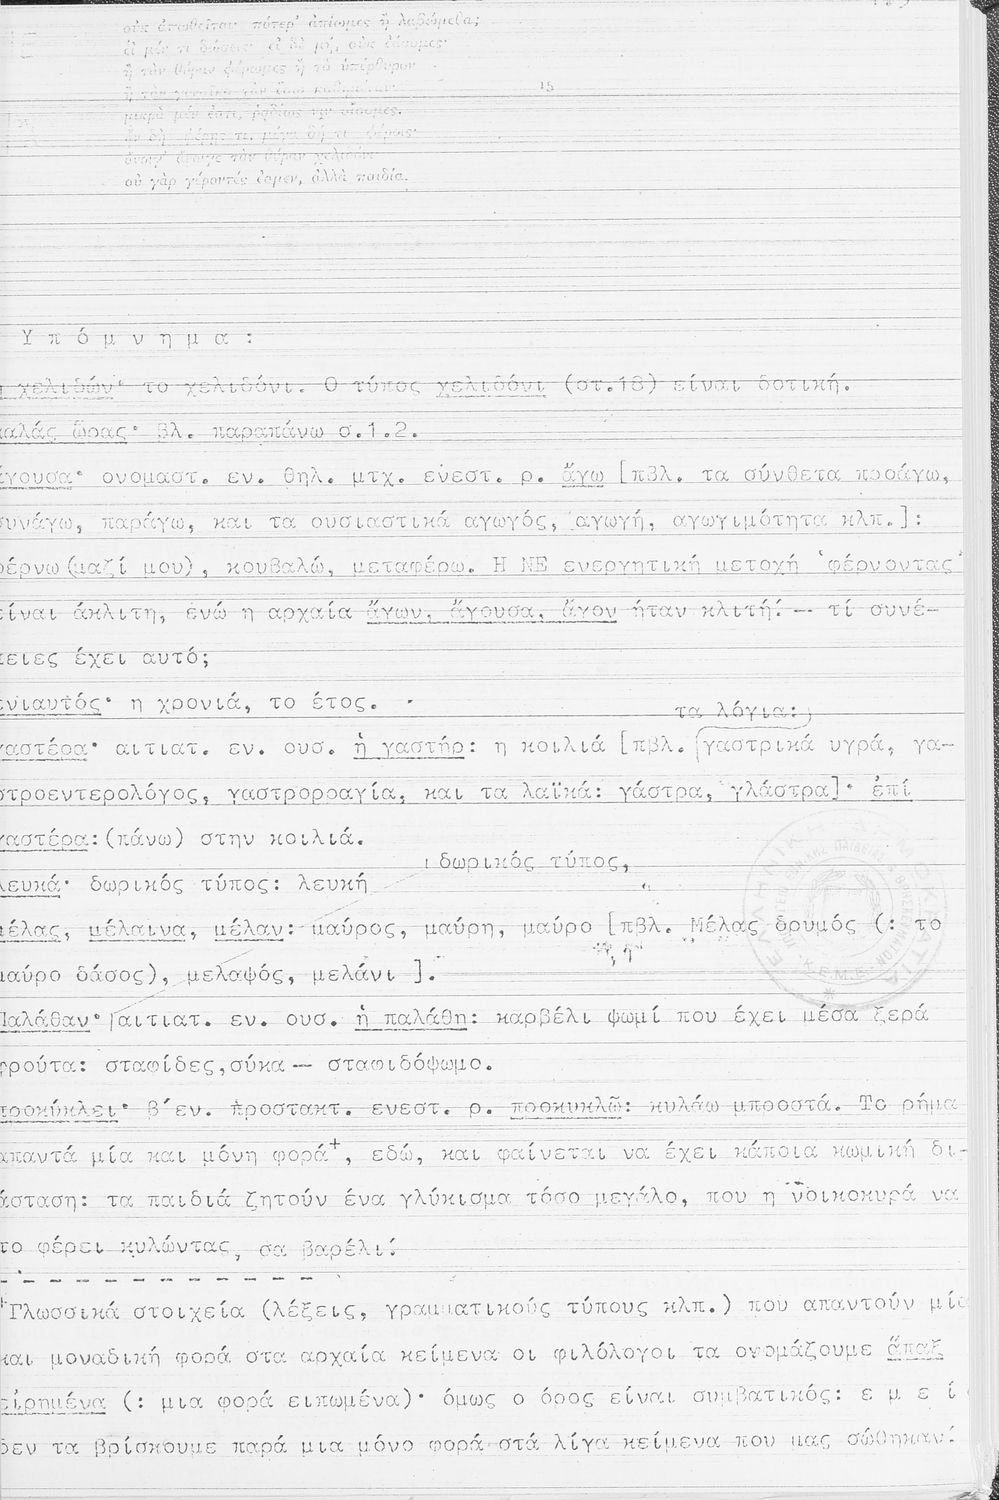 οὐκ ἀπωθεῖται πότερ' ἀπίωμες ἢ λαβώμεθα;
εἰ μέν τι δώσεις· εἰ δὲ μή, οὐκ ἐάσομες·
ἢ τὰν θύραν φέρωμες ἢ τὸ ὑπέρθυρον
ἢ τὰν γυναῖκα τὰν ἔσω καθημέναν· 15
μικρὰ μέν ἐστι, ῥᾳδίως νιν οἴσομες.
φέρῃς τι, μέγα δή τι φέροις·
ἄνοιγ' ἄνοιγε τὰν θύραν χελιδόνι·
οὐ γὰρ γέροντές ἐσμεν, ἀλλὰ παιδία.
Υ π ό μ ν η μ α :
χελιδών· το χελιδόνι. Ο τύπος χελιδόνι (στ.18) είναι δοτική.
καλάς ὥρας· βλ. παραπάνω σ.1.2.
ἄγουσα· ονομαστ. εν. θηλ. μτχ. ενεστ. ρ. ἄγω [πβλ. τα σύνθετα προάγω,
συνάγω, παράγω, και τα ουσιαστικά αγωγός, αγωγή, αγωγιμότητα κλπ.]:
φέρνω(μαζί μου), κουβαλώ, μεταφέρω. Η ΝΕ ενεργητική μετοχή 'φέρνοντας'
είναι άκλιτη, ενώ η αρχαία ἄγων, ἄγουσα, ἄγον ήταν κλιτή! — τί συνέ-
πειες έχει αυτό;
ενιαυτός· η χρονιά, το έτος.
τα λόγια:
γαστέρα· αιτιατ. εν. ουσ. ἡ γαστήρ: η κοιλιά [πβλ. γαστρικά υγρά, γα-
στροεντερολόγος, γαστρορραγία, και τα λαϊκά: γάστρα, γλάστρα]· ἐπί
γαστέρα:(πάνω) στην κοιλιά.
δωρικός τύπος,
λευκά· δωρικός τύπος: λευκή
μέλας, μέλαινα, μέλαν: μαύρος, μαύρη, μαύρο [πβλ. Μέλας δρυμός (: το
μαύρο δάσος), μελαψός, μελάνι ].
Παλάθαν· αιτιατ. εν. ουσ. ἡ παλάθη: καρβέλι ψωμί που έχει μέσα ξερά
φρούτα: σταφίδες,σύκα — σταφιδόψωμο.
προκύκλει· β΄εν. προστακτ. ενεστ. ρ. προκυκλῶ: κυλάω μπροστά. Το ρήμα
απαντά μία και μόνη φορά+, εδώ, και φαίνεται να έχει κάποια κωμική δι-
άσταση: τα παιδιά ζητούν ένα γλύκισμα τόσο μεγάλο, που η νοικοκυρά να
το φέρει κυλώντας, σα βαρέλι!
- - - - - - - - - - - -
+Γλωσσικά στοιχεία (λέξεις, γραμματικούς τύπους κλπ.) που απαντούν μία
και μοναδική φορά στα αρχαία κείμενα οι φιλόλογοι τα ονομάζουμε ἅπαξ
εἰρημένα (: μια φορά ειπωμένα)· όμως ο όρος είναι συμβατικός: ε μ ε ί
δεν τα βρίσκουμε παρά μια μόνο φορά στά λίγα κείμενα που μας σώθηκαν!
ΕΛΛΗΝΙΚΗ ΔΗΜΟΚΡΑΤΙΑ
Κ.Ε.Μ.Ε.